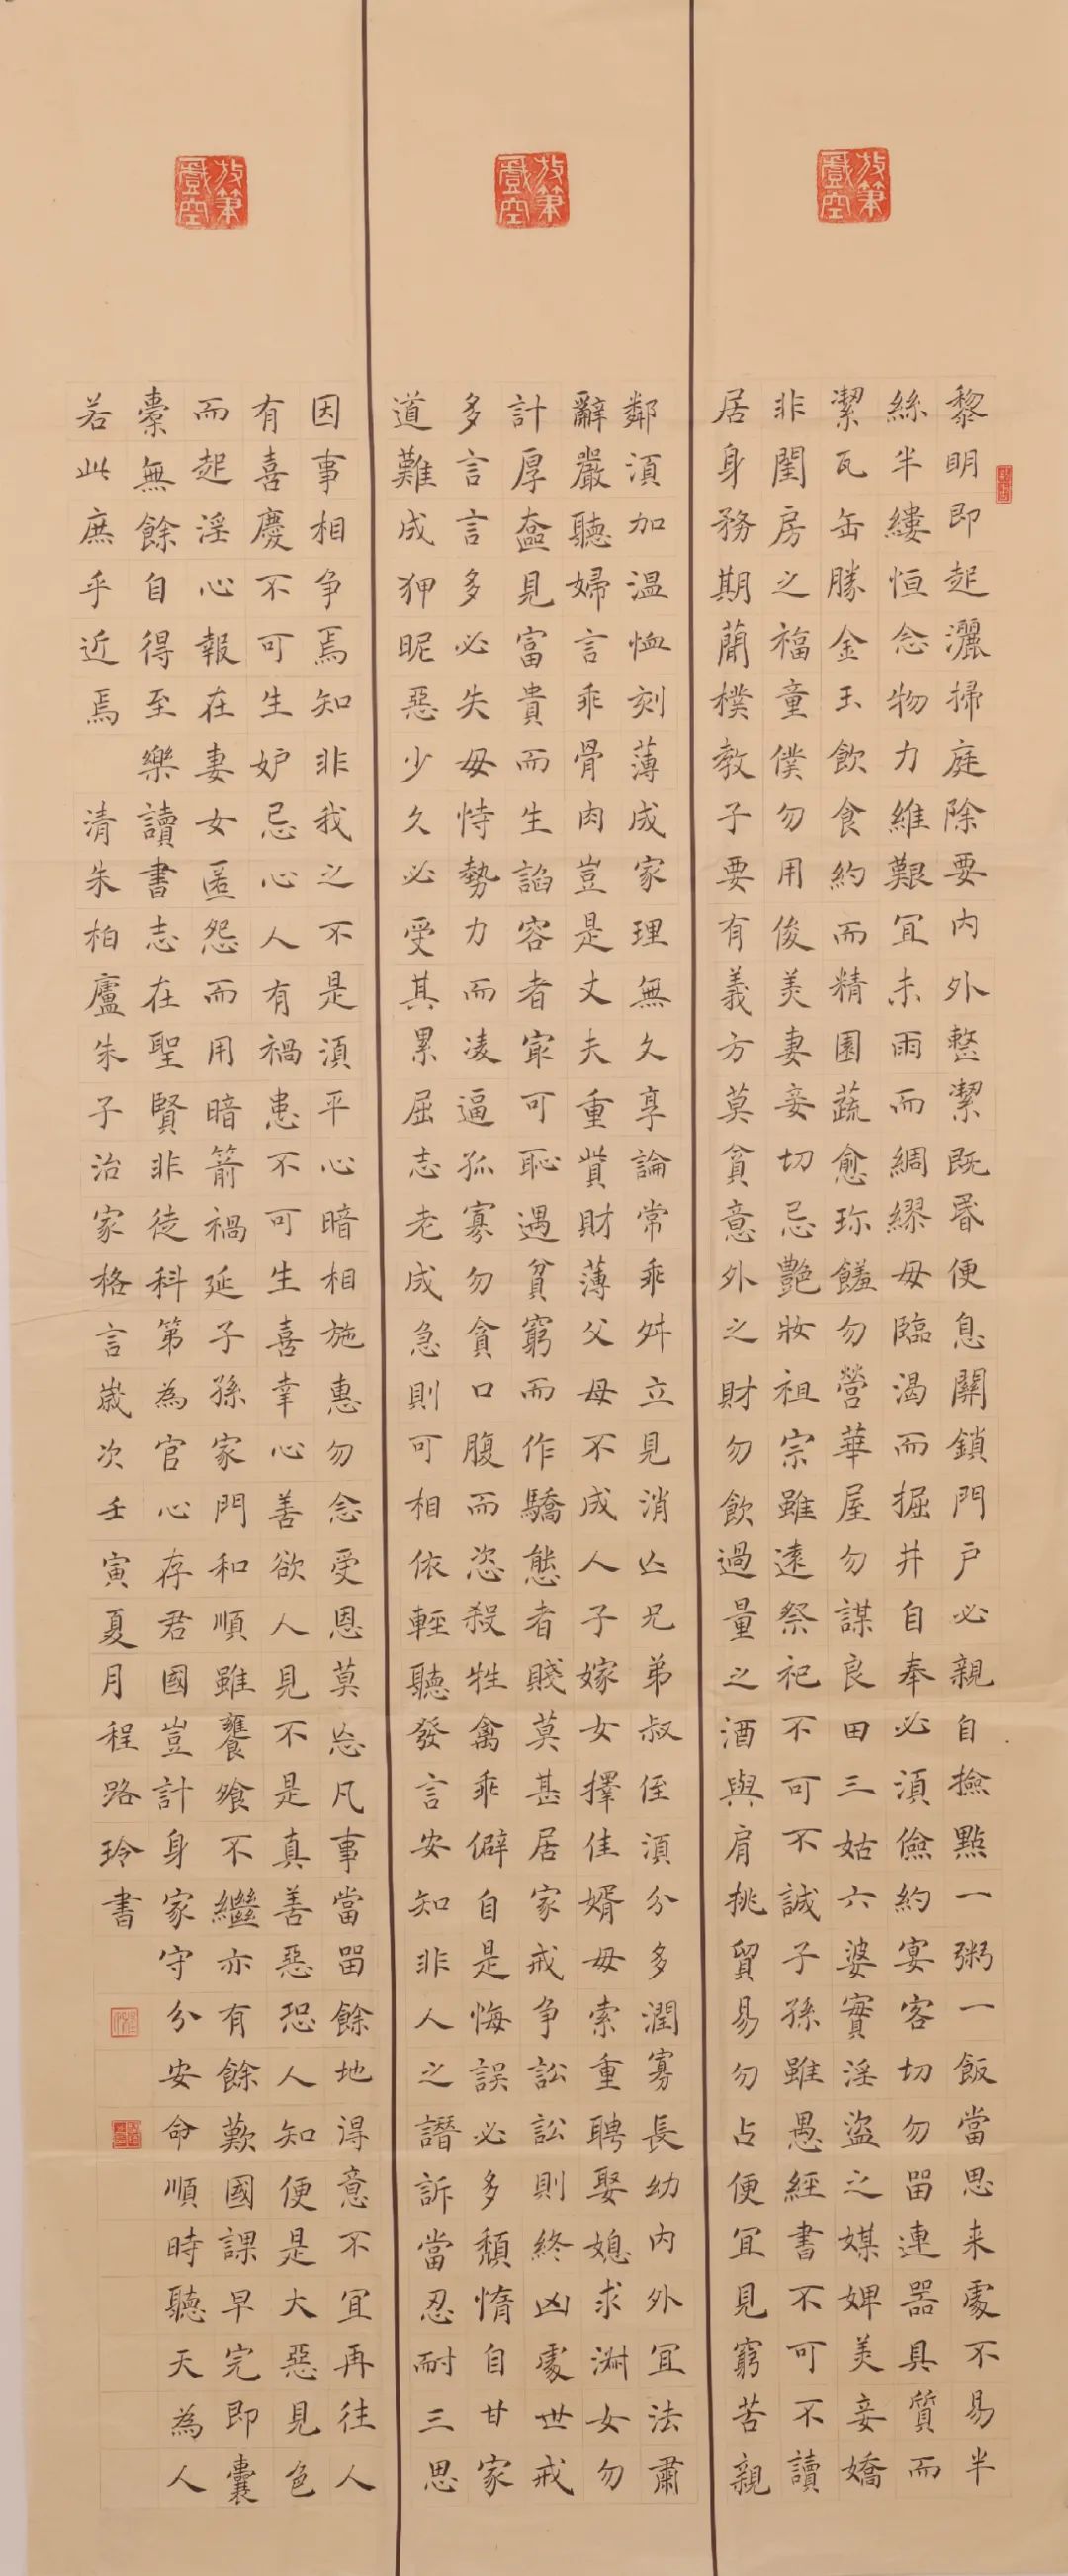 放筆戲空
黎明即起灑掃庭除要內外整潔既昬便息關鎖門戶必親自撿點一粥一飯當思来處不易半
絲半縷恒念物力維艱宜未雨而綢繆毋臨渴而掘井自奉必湏儉約宴客切勿畱連器具質而
潔瓦缶勝金玉飲食約而精園蔬愈珎饈勿營華屋勿謀良田三姑六婆實淫盜之媒婢美妾嬌
非閨房之福童僕勿用俊美妻妾切忌艷妝祖宗雖遠祭祀不可不誠子孫雖愚經書不可不讀
居身務期蕳樸教子要有義方莫貪意外之財勿飲過量之酒與肩挑貿易勿占便宜見窮苦親
放筆戲空
鄰湏加溫恤刻薄成家理無久享論常乖舛立見消亾兄弟叔侄湏分多潤寡長幼內外宜法肅
辭嚴聽婦言乖骨肉豈是丈夫重貲財薄父母不成人子嫁女擇佳婿毋索重聘娶媳求淑女勿
計厚奩見富貴而生諂容者㝡可恥遇貧窮而作驕態者賤莫甚居家戒争訟訟則終凶處世戒
多言言多必失毋恃勢力而凌逼孤寡勿貪口腹而恣殺牲禽乖僻自是悔誤必多頹惰自甘家
道難成狎昵惡少久必受其累屈志老成急則可相依輕聽發言安知非人之譖訴當忍耐三思
放筆戲空
因事相争焉知非我之不是湏平心暗想施惠勿念受恩莫忘凡事當畱餘地得意不宜再往人
有喜慶不可生妒忌心人有禍患不可生喜幸心善欲人見不是真善惡恐人知便是大惡見色
而起淫心報在妻女匿怨而用暗箭禍延子孫家門和順雖饔飧不繼亦有餘歡國課早完即囊
橐無餘自得至樂讀書志在聖賢非徒科第為官心存君國豈計身家守分安命順時聽天為人
若此庶乎近焉 清朱柏廬朱子治家格言歲次壬寅夏月程路玲書